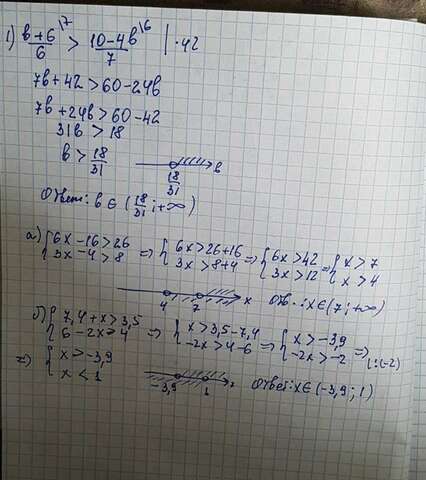 1) (b+6)/6 \7 > (10-4b)/7 \6 | ·42
7b+42 > 60-24b
7b+24b > 60-42
31b > 18
b > 18/31
18/31 b
Ответ: b ∈ (18/31; +∞)
а) {6x-16>26 3x-4>8 => {6x>26+16 3x>8+4 => {6x>42 3x>12 => {x>7 x>4
4 7 x Отв.: x∈(7;+∞)
б) {7,4+x>3,5 6-2x>4 => {x>3,5-7,4 -2x>4-6 => {x>-3,9 -2x>-2 => |:(-2)
=> {x>-3,9 x<1
-3,9 1 x Ответ: x∈(-3,9;1)